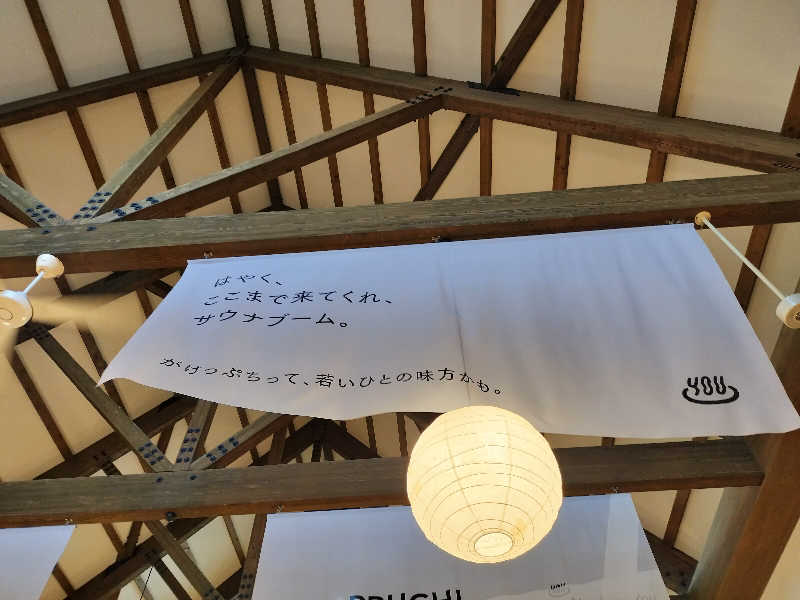 はやく、
ここまで来てくれ、
サウナブーム。
がけっぷちって、若いひとの味方かも。
YOU